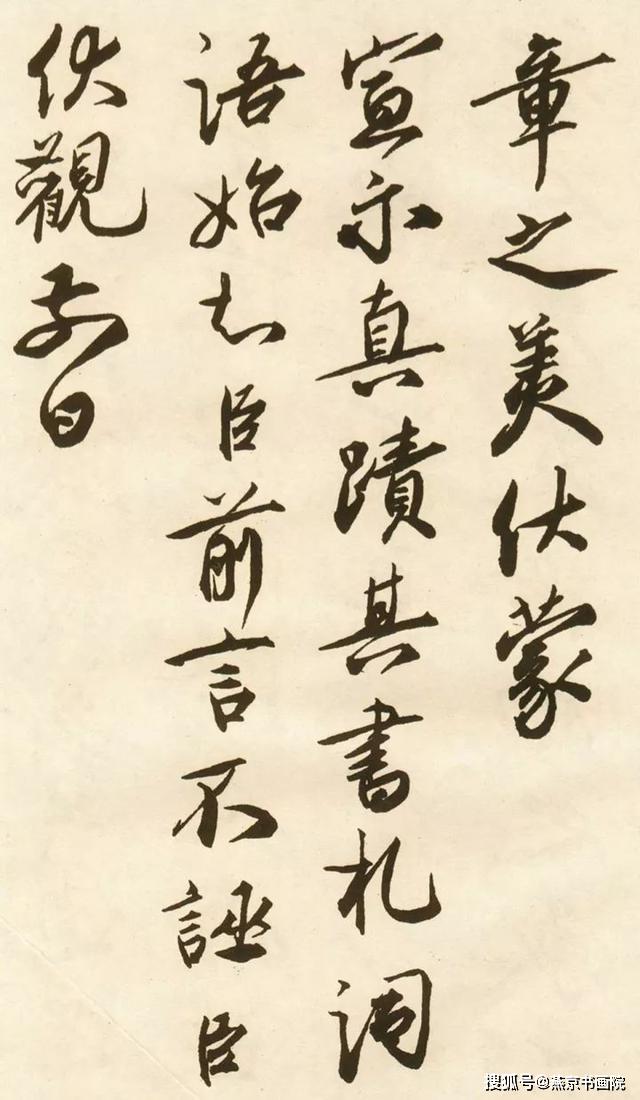 章之美伏蒙
宣示真蹟其書札詞
語始知臣前言不誣臣
伏觀日
搜狐号@燕京书画院